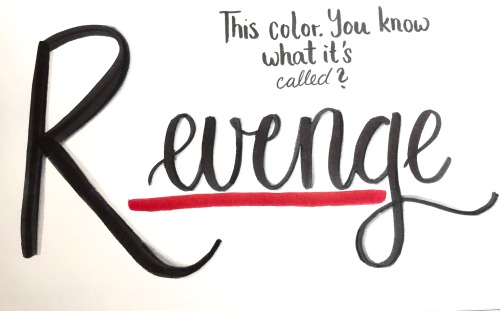 This color. You know
what it's
called?
Revenge